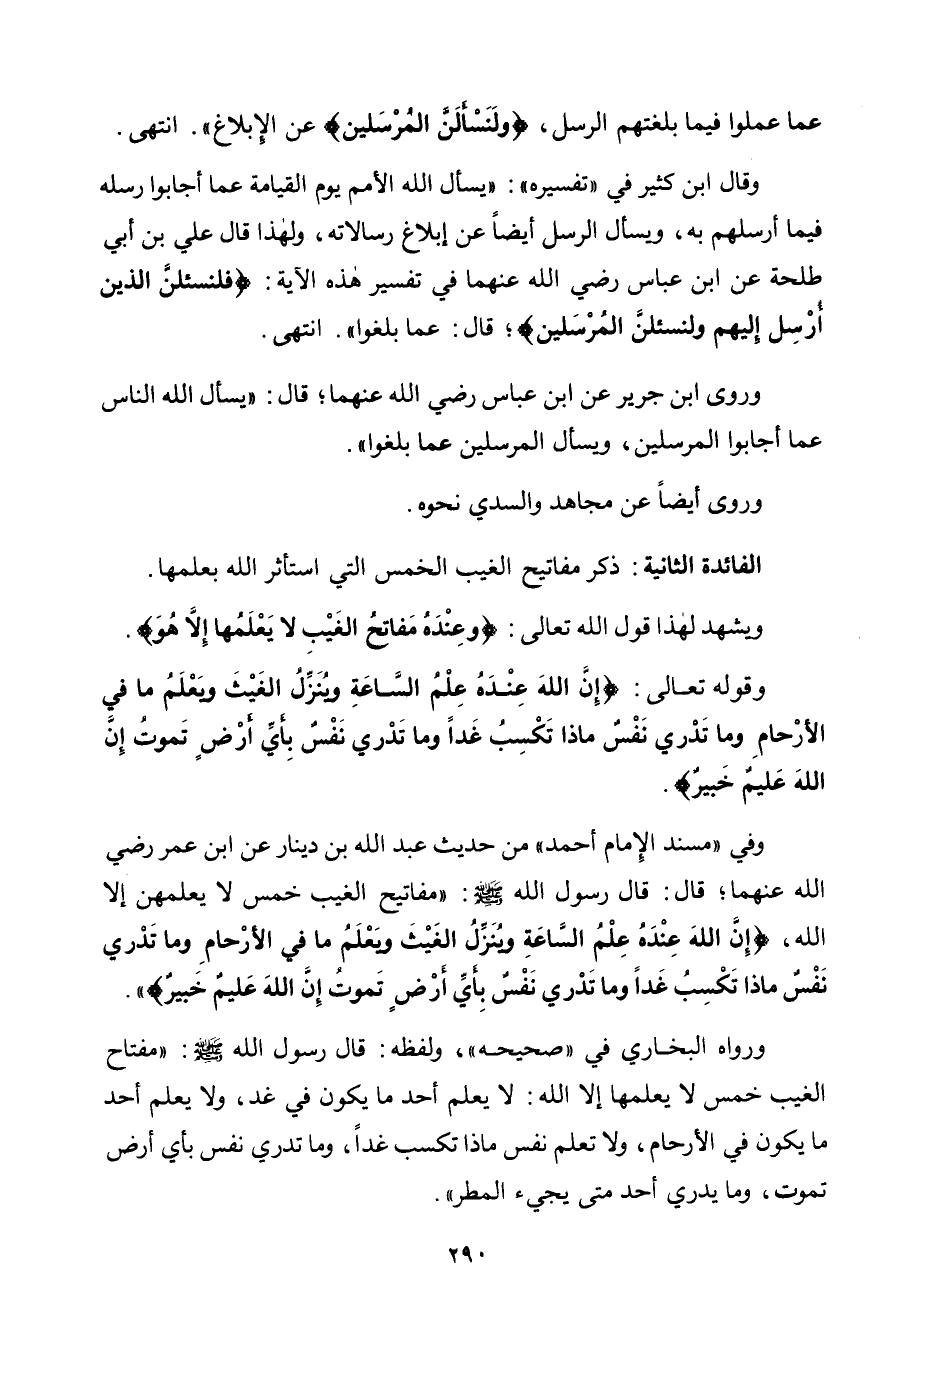 عما عملوا فيما بلغتهم الرسل، ﴿ولَنَسْأَلَنَّ المُرْسَلين﴾ عن الإِبلاغ». انتهى.
وقال ابن كثير في «تفسيره»: «يسأل الله الأمم يوم القيامة عما أجابوا رسله
فيما أرسلهم به، ويسأل الرسل أيضاً عن إبلاغ رسالاته، ولهٰذا قال علي بن أبي
طلحة عن ابن عباس رضي الله عنهما في تفسير هٰذه الآية: ﴿فلنسئلنَّ الذين
أُرْسِل إِليهم ولنسئلنَّ المُرْسَلين﴾؛ قال: عما بلغوا». انتهى.
وروى ابن جرير عن ابن عباس رضي الله عنهما؛ قال: «يسأل الله الناس
عما أجابوا المرسلين، ويسأل المرسلين عما بلغوا».
وروى أيضاً عن مجاهد والسدي نحوه.
الفائدة الثانية: ذكر مفاتيح الغيب الخمس التي استأثر الله بعلمها.
ويشهد لهٰذا قول الله تعالى: ﴿وعِنْدَهُ مَفاتحُ الغَيْبِ لا يَعْلَمُها إِلَّا هُوَ﴾.
وقوله تعالى: ﴿إِنَّ اللهَ عِنْدَهُ عِلْمُ السَّاعَةِ ويُنَزِّلُ الغَيْثَ ويَعْلَمُ ما في
الأرْحامِ وما تَدْري نَفْسٌ ماذا تَكْسِبُ غَداً وما تَدْري نَفْسٌ بِأَيِّ أَرْضٍ تَموتُ إِنَّ
اللهَ عَليمٌ خَبيرٌ﴾.
وفي «مسند الإِمام أحمد» من حديث عبد الله بن دينار عن ابن عمر رضي
الله عنهما؛ قال: قال رسول الله ﷺ: «مفاتيح الغيب خمس لا يعلمهن إلا
الله، ﴿إِنَّ اللهَ عِنْدَهُ عِلْمُ السَّاعَةِ ويُنَزِّلُ الغَيْثَ ويَعْلَمُ ما في الأرْحامِ وما تَدْري
نَفْسٌ ماذا تَكْسِبُ غَداً وما تَدْري نَفْسٌ بِأَيِّ أَرْضٍ تَموتُ إِنَّ اللهَ عَليمٌ خَبيرٌ﴾».
ورواه البخاري في «صحيحه»، ولفظه: قال رسول الله ﷺ: «مفتاح
الغيب خمس لا يعلمها إلا الله: لا يعلم أحد ما يكون في غد، ولا يعلم أحد
ما يكون في الأرحام، ولا تعلم نفس ماذا تكسب غداً، وما تدري نفس بأي أرض
تموت، وما يدري أحد متى يجيء المطر».
٢٩٠